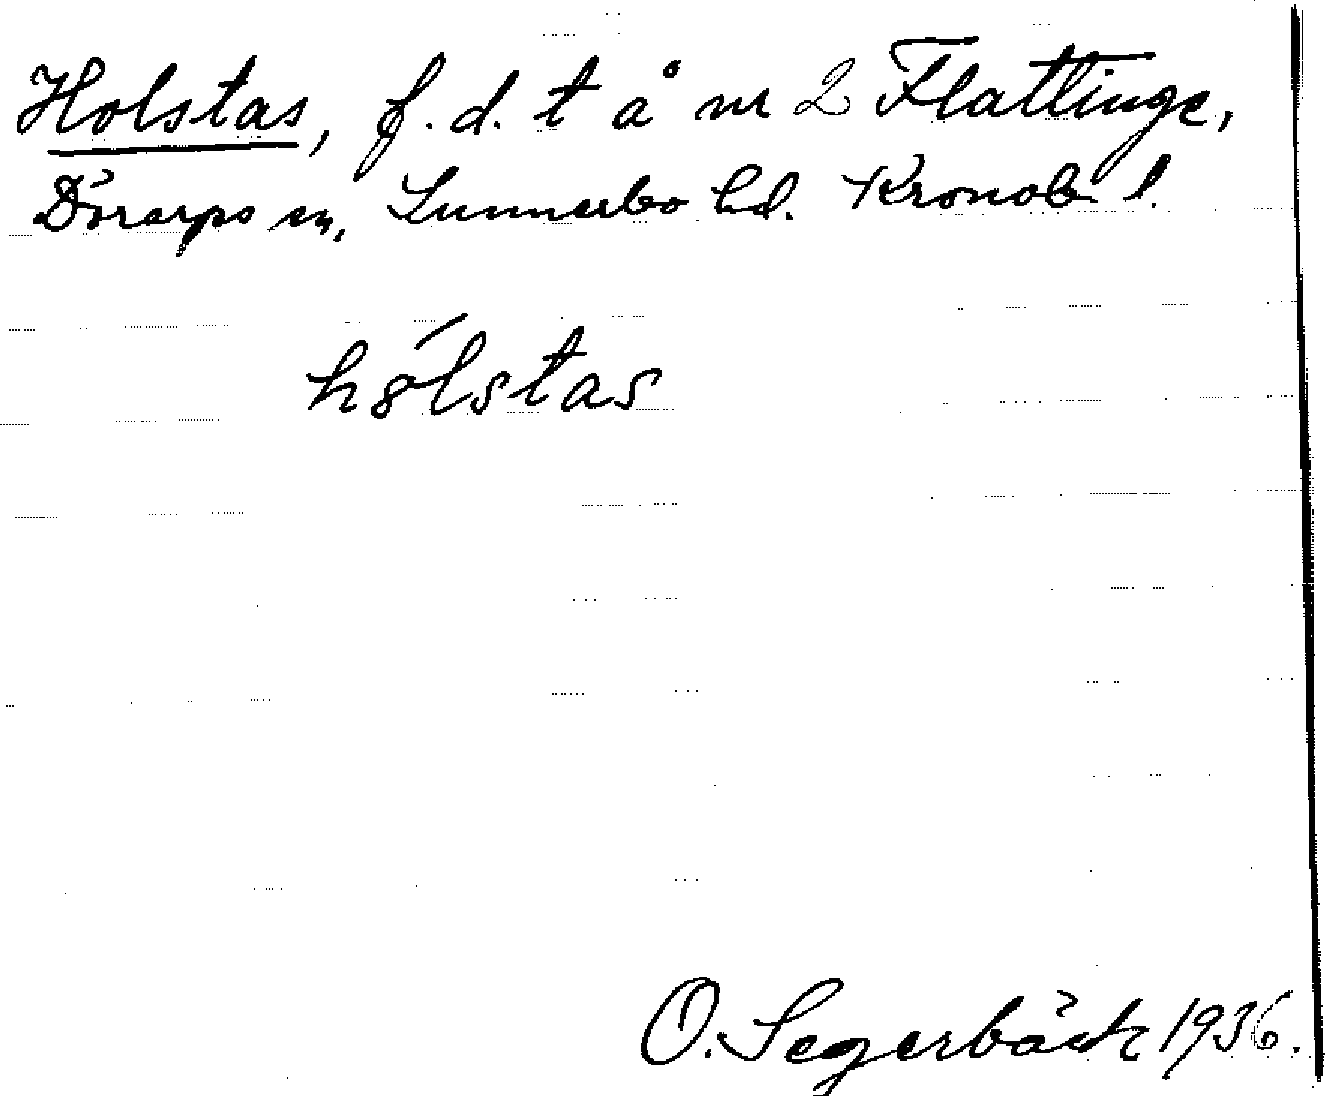 Holstas, f.d. t å nr 2 Flattinge,
Dörarps sn, Sunnerbo hd. Kronob l.
hólstas
O. Segerbäck 1936.